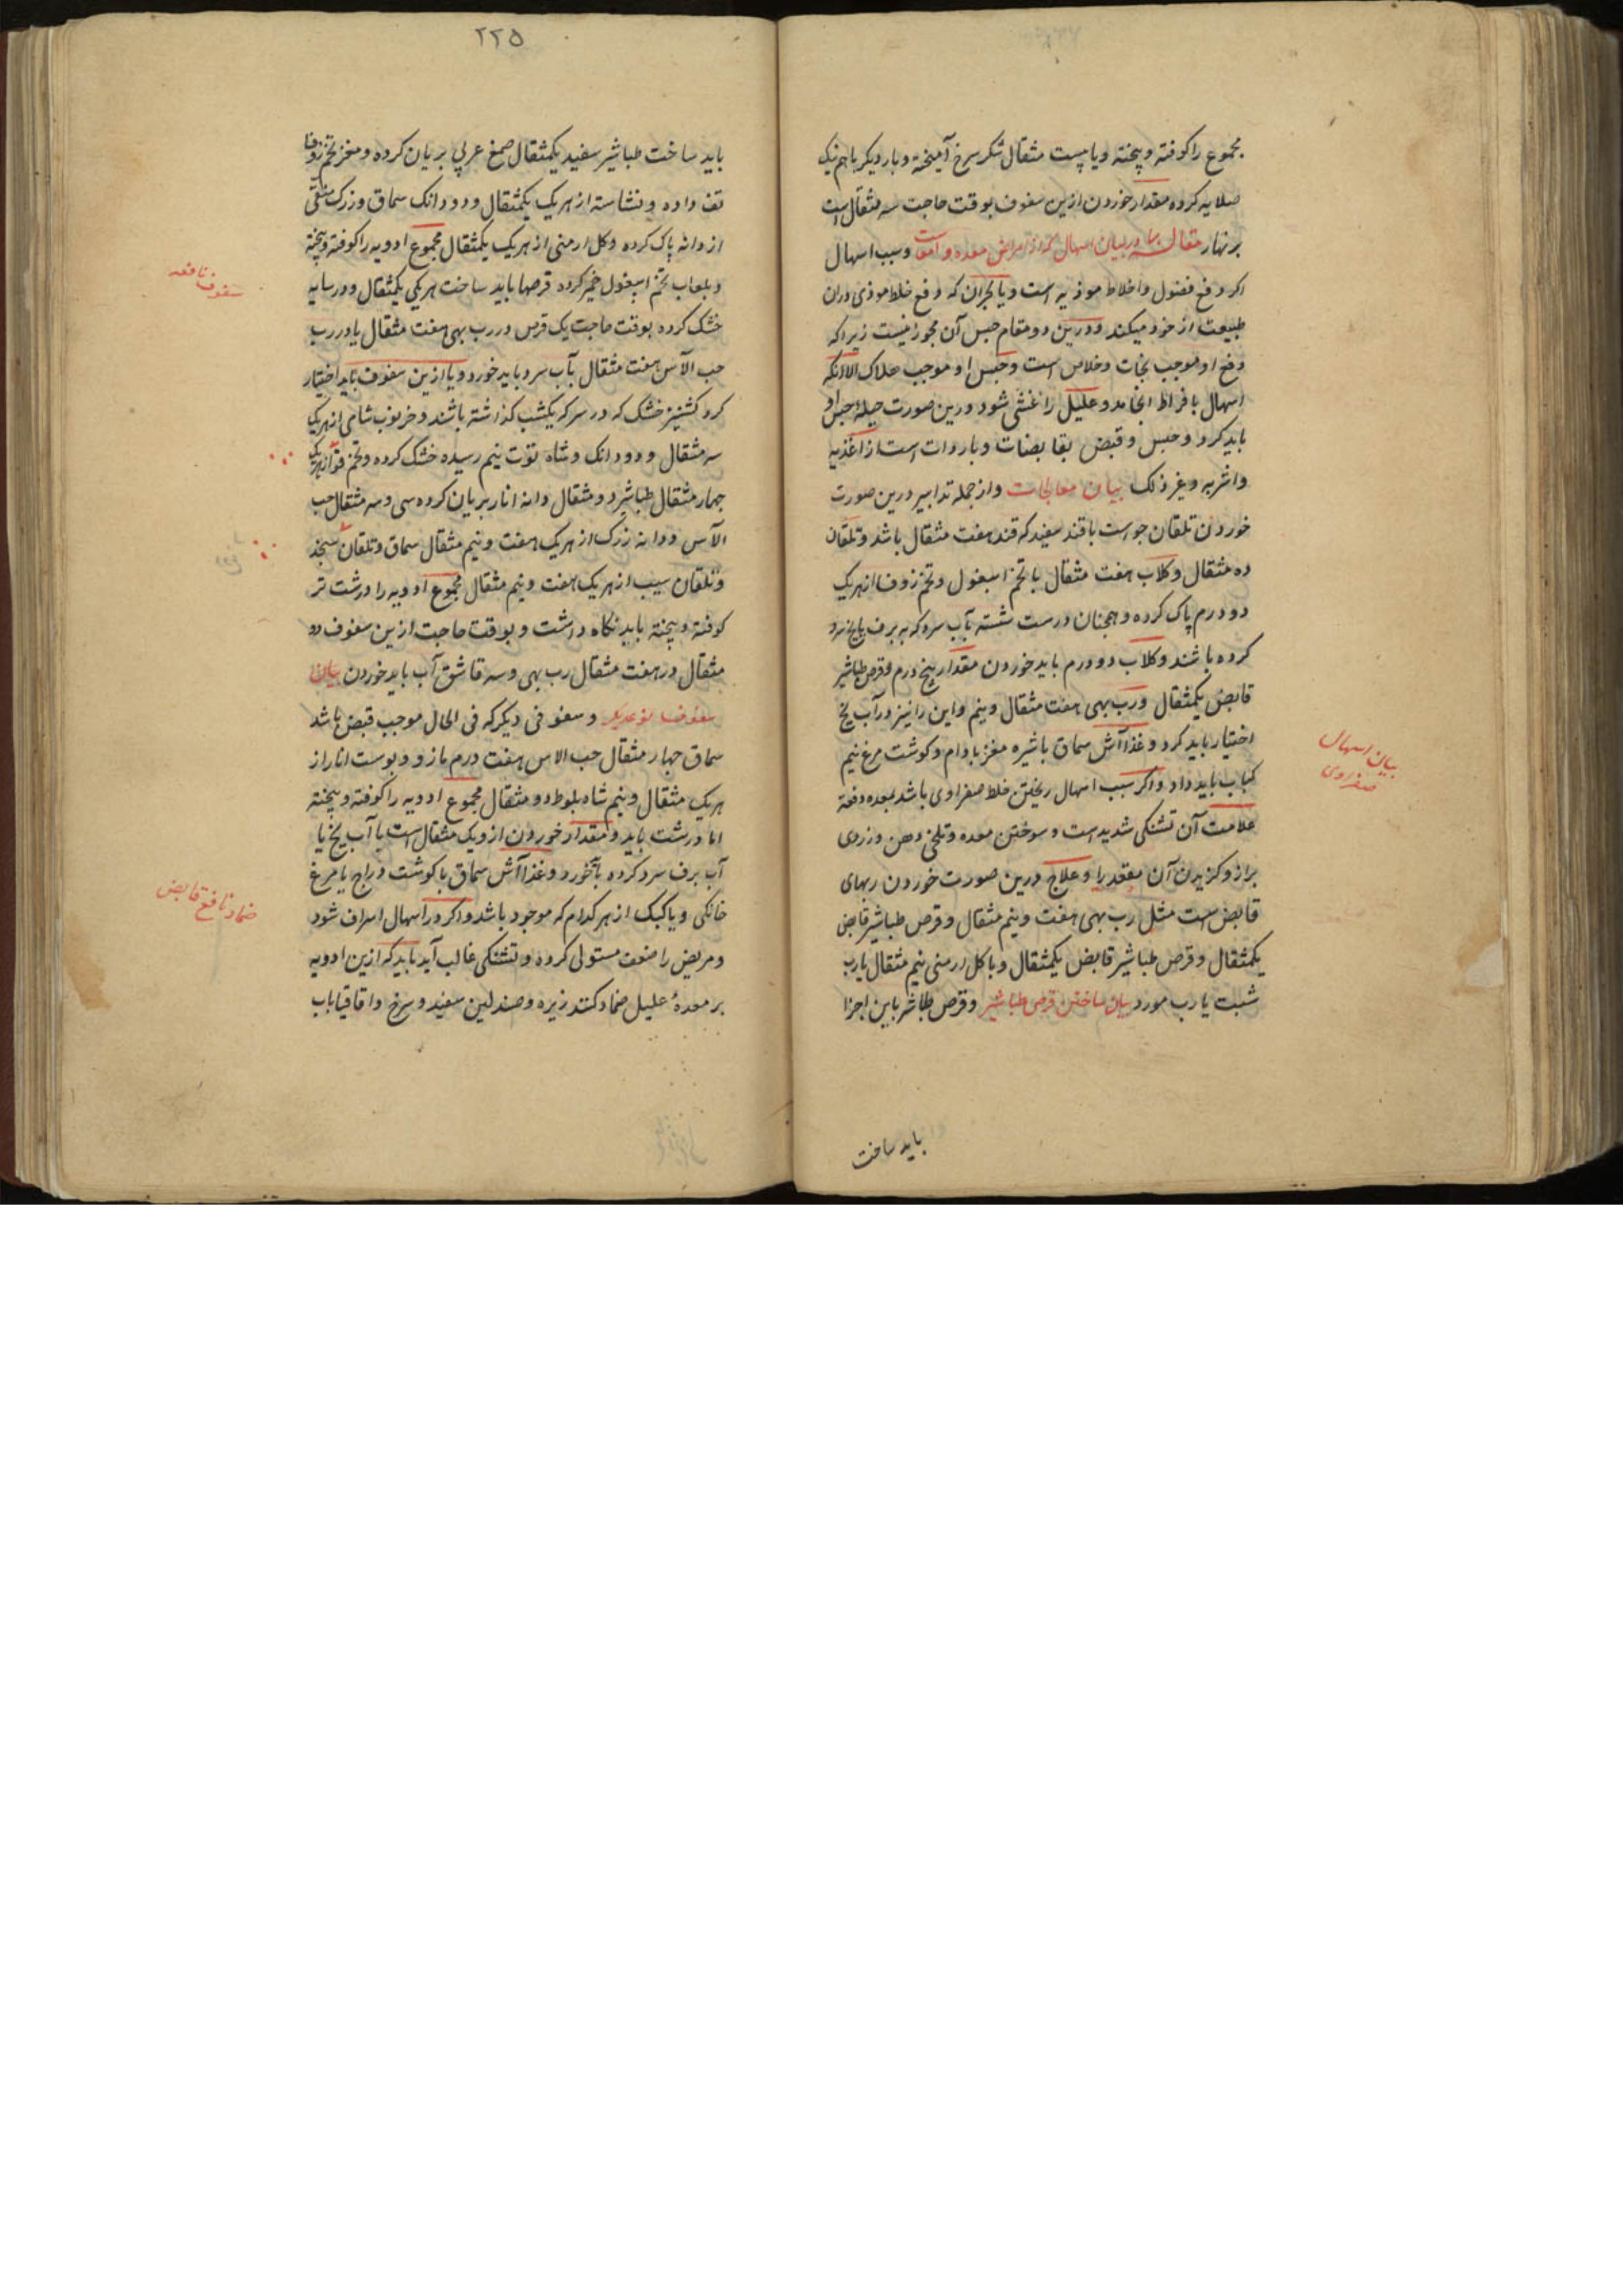 مجموع را کوفته و پخته و یا بیست مثقال شکر سرخ آمیخته و بار دیکر با هم نیک
صلایه کرده مقدار خوردن ازین سفوف بوقت حاجت سه مثقال است
بر نهار مقاله در بیان اسهال که از امراض معده و امعاست وسبب اسهال
اکر دفع فضول واخلاط موذیه است و یا بحران که دفع خلط موذی دران
طبیعت از خود میکند ودرین دو مقام حبس آن مجوز نیست زیراکه
دفع او موجب نجات وخلاص است وحبس او موجب هلاک الا آنکه
اسهال بافراط انجامد و علیل را غشی شود درین صورت حیلهٔ حبس او
باید کرد وحبس وقبض بقابضات وباردات است از اغذیه
واشربه وغیر ذلک بیان معالجات واز جمله تدابیر درین صورت
خوردن تلقان جواست با قند سفید که قند هفت مثقال باشد وتلقان
ده مثقال وکلاب هفت مثقال با تخم اسبغول وتخم زوفا از هر یک
دو درم پاک کرده وهمچنان درست شسته بآب سرد که به برف یا یخ سرد
کرده باشند وکلاب دو درم باید خوردن مقدار پنج درم وقرص طباشیر
قابض یکمثقال ورب بهی هفت مثقال ونیم واین را نیز در آب یخ
اختیار باید کرد وغذا آش سماق باشیره مغز بادام وکوشت مرغ نیم
کباب باید داد واکر سبب اسهال ریختن خلط صفراوی باشد بمعده دفعة
علامت آن تشنکی شدید است وسوختن معده وتلخی دهن وزردی
براز وکزیدن آن مقعد را وعلاج درین صورت خوردن ربهای
قابض است مثل رب بهی هفت ونیم مثقال وقرص طباشیر قابض
یکمثقال وقرص طباشیر قابض یکمثقال وبا کل ارمنی نیم مثقال یا رب
شبت یا رب مورد بیان ساختن قرص طباشیر وقرص طباشیر باین اجزا
باید ساخت
بیان اسهال
صفراوی
۲۲۵
باید ساخت طباشیر سفید یکمثقال صمغ عربی بریان کرده ومغز تخم زوفا
تف داده ونشاسته از هر یک یکمثقال ودو دانک سماق وزرک منقی
از دانه پاک کرده وکل ارمنی از هر یک یکمثقال مجموع ادویه را کوفته وپخته
وبلعاب تخم اسبغول خمیر کرده قرصها باید ساخت هر یکی یکمثقال ودر سایه
خشک کرده بوقت حاجت یک قرص در رب بهی هفت مثقال یا در رب
حب الآس هفت مثقال بآب سرد باید خورد ویا ازین سفوف باید اختیار
کرد کشنیز خشک که در سرکه یکشب کذاشته باشند وخرنوب شامی از هر یک
سه مثقال ودو دانک وشاه توت نیم رسیده خشک کرده وتخم از هر یک
چهار مثقال طباشیر دو مثقال دانه انار بریان کرده سی وسه مثقال حب
الآس ودانه زرک از هر یک هفت ونیم مثقال سماق وتلقان سنجد
وتلقان سیب از هر یک هفت ونیم مثقال مجموع ادویه را درشت تر
کوفته وپخته باید نکاه داشت وبوقت حاجت ازین سفوف دو
مثقال در هفت مثقال رب بهی وسه قاشق آب باید خوردن بیان
سفوف نوع دیکر وسفوفی دیکر که فی الحال موجب قبض باشد
سماق چهار مثقال حب الاس هفت درم مازو وپوست انار از
هر یک مثقال ونیم شاه بلوط دو مثقال مجموع ادویه را کوفته وپخته
اما درشت باید ومقدار خوردن ازو یک مثقال است با آب یخ یا
آب برف سرد کرده بخورد وغذا آش سماق با کوشت دراج یا مرغ
خانکی ویا کبک از هر کدام که موجود باشد واکر در اسهال اسراف شود
ومریض را ضعف مستولی کرده وتشنکی غالب آید باید که ازین ادویه
بر معدهٔ علیل ضماد کنند زیره وصندلین سفید وسرخ واقاقیا باب
سفوف نافعه
ضماد نافع قابض